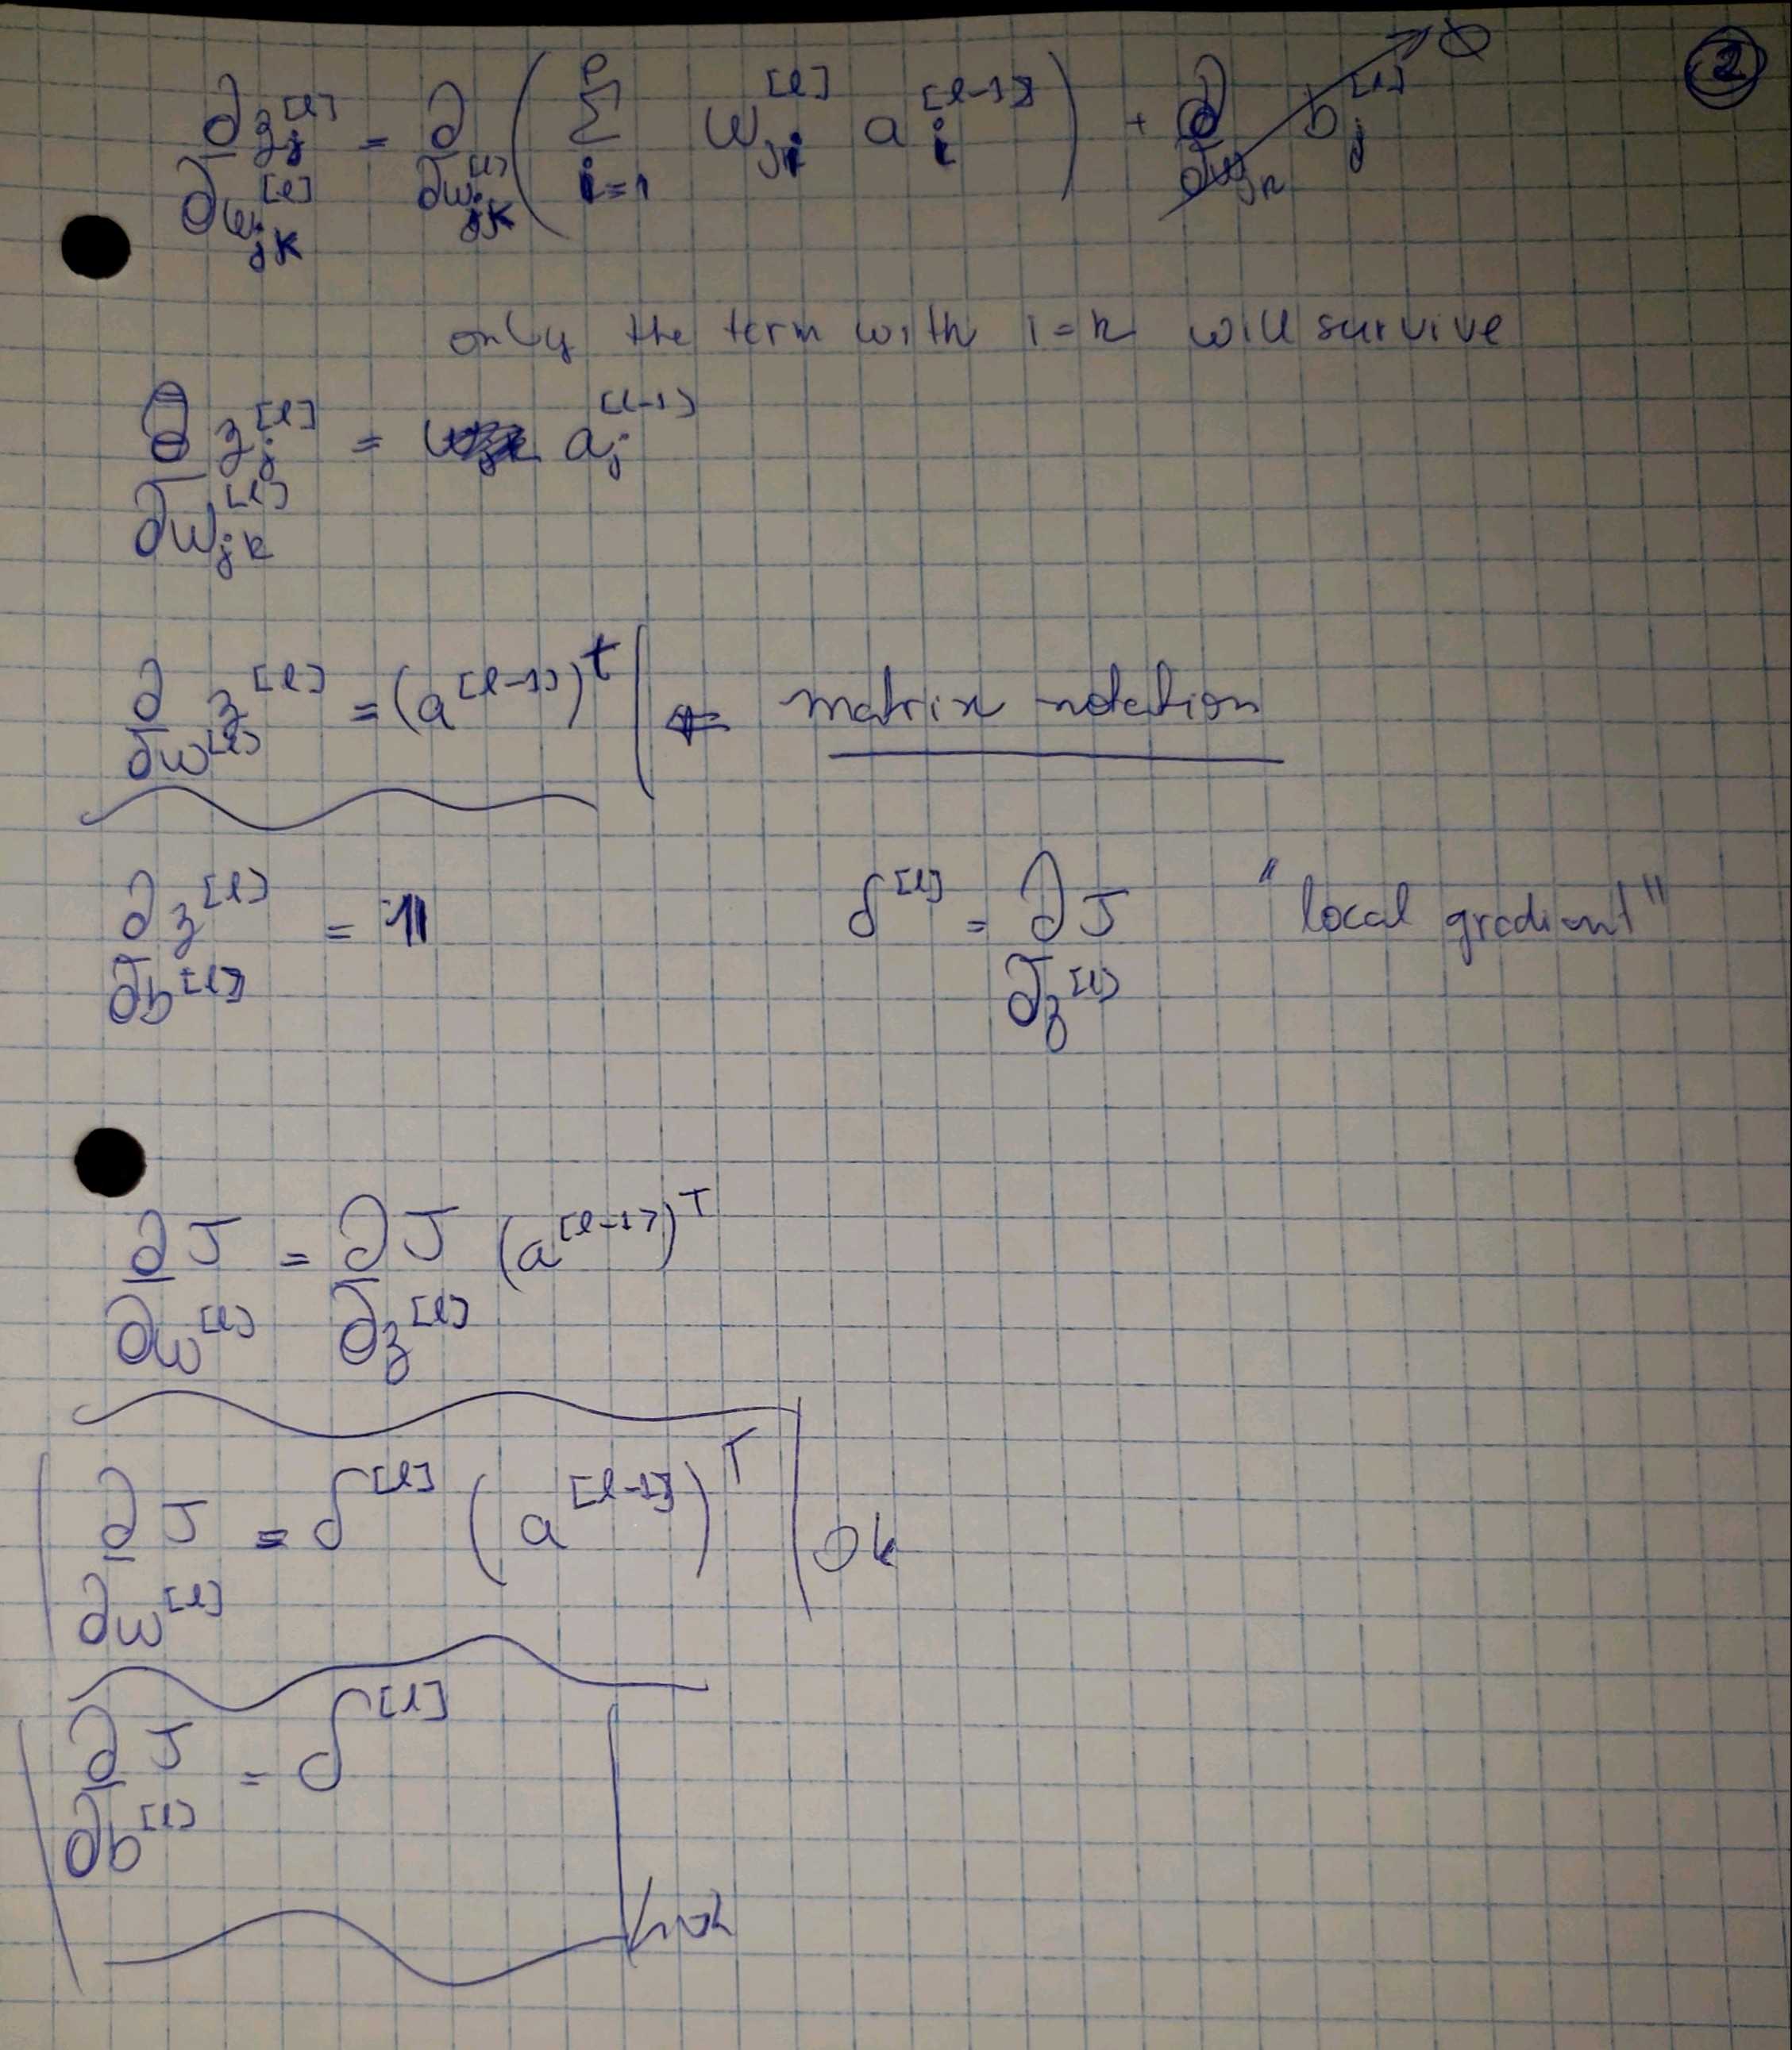 ②
∂z_j^[l] / ∂w_jk^[l] = ∂/∂w_jk^[l] ( Σ_{i=1}^{p} w_ji^[l] a_i^[l-1] ) + ∂/∂w_jk b_j^[l] → 0
only the term with i=k will survive
∂z_j^[l] / ∂w_jk^[l] = a_j^[l-1]
∂z^[l] / ∂w^[l] = (a^[l-1])^t | ⇐ matrix notation
∂z^[l] / ∂b^[l] = 1
δ^[l] = ∂J / ∂z^[l] "local gradient"
∂J / ∂w^[l] = ∂J / ∂z^[l] (a^[l-1])^T
∂J / ∂w^[l] = δ^[l] (a^[l-1])^T | Ok
∂J / ∂b^[l] = δ^[l]